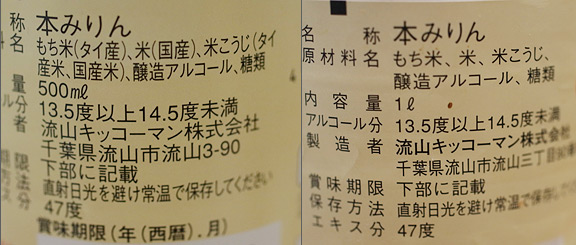 称 本みりん
もち米(タイ産)、米(国産)、米こうじ(タイ
産米、国産米)、醸造アルコール、糖類
量 500mℓ
分 13.5度以上14.5度未満
者 流山キッコーマン株式会社
千葉県流山市流山3-90
限 下部に記載
法 直射日光を避け常温で保存してください
分 47度
賞味期限(年(西暦).月)
名称 本みりん
原材料名 もち米、米、米こうじ、
醸造アルコール、糖類
内容量 1ℓ
アルコール分 13.5度以上14.5度未満
製造者 流山キッコーマン株式会社
千葉県流山市流山三丁目
賞味期限 下部に記載
保存方法 直射日光を避け常温で保存
エキス分 47度